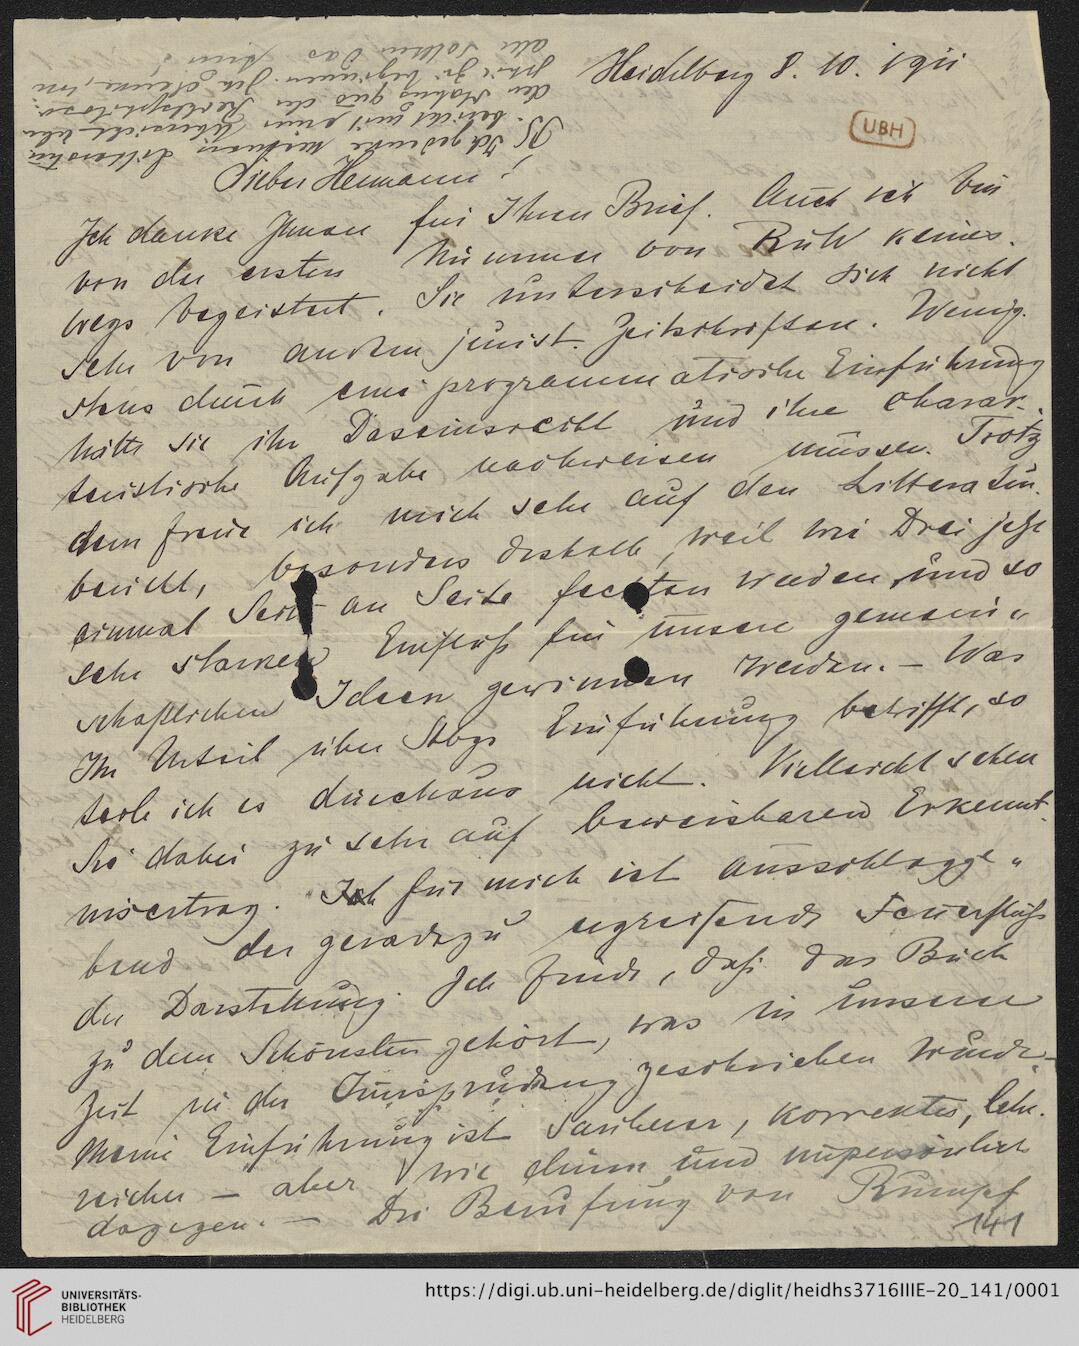 Heidelberg 8. 10. 1911
UBH
PS Ich gedenke meinen Litteratur-
bericht mit einer Übersicht über
den Stand der Rechtsphilosophie
zu beginnen. Ich
Lieber Hermann!
Ich danke Ihnen für Ihren Brief. Auch ich bin
von der ersten Nummer von RuW keines-
wegs begeistert. Sie unterscheidet sich nicht
sehr von andren jurist. Zeitschriften. Wenig-
stens durch eine programmatische Einführung
hätte sie ihr Daseinsrecht und ihre charak-
teristische Aufgabe nachweisen müssen. Trotz
dem freue ich mich sehr auf den Litteratur-
bericht, besonders deshalb, weil wir Drei jetzt
einmal Seite an Seite fechten werden und so
sehr starken Einfluß für unsere gemein-
schaftlichen Ideen gewinnen werden. – Was
Ihr Urteil über Sbgs Einführung betrifft, so
teile ich es durchaus nicht. Vielleicht sehen
Sie dabei zu sehr auf beweisbaren Erkennt-
nisertrag. Ich für mich ist ausschlagge-
bend der geradezu ergreifende Feuerfluß
der Darstellung. Ich finde, daß das Buch
zu dem Schönsten gehört, was in unserer
Zeit in der Jurisprudenz geschrieben wurde.
Meine Einführung ist sauberer, korrekter, lehr-
reicher – aber wie dünn und unpersönlich
dagegen. – Die Berufung von Rumpf
141
UNIVERSITÄTS-
BIBLIOTHEK
HEIDELBERG
https://digi.ub.uni-heidelberg.de/diglit/heidhs3716IIIE-20_141/0001